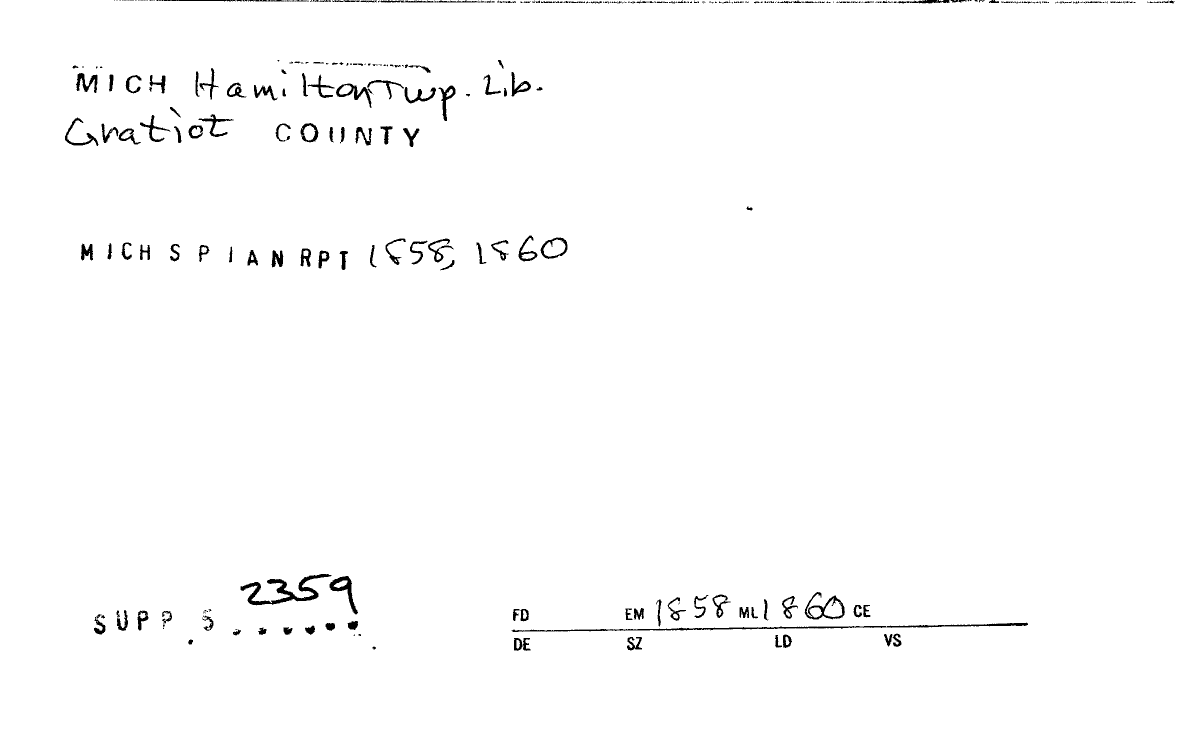 MICH Hamilton Twp. Lib.
Gratiot COUNTY
MICH S P I AN RPT 1858, 1860
2359
SUPP.5......
FD EM 1858 ML 1860 CE
DE SZ LD VS